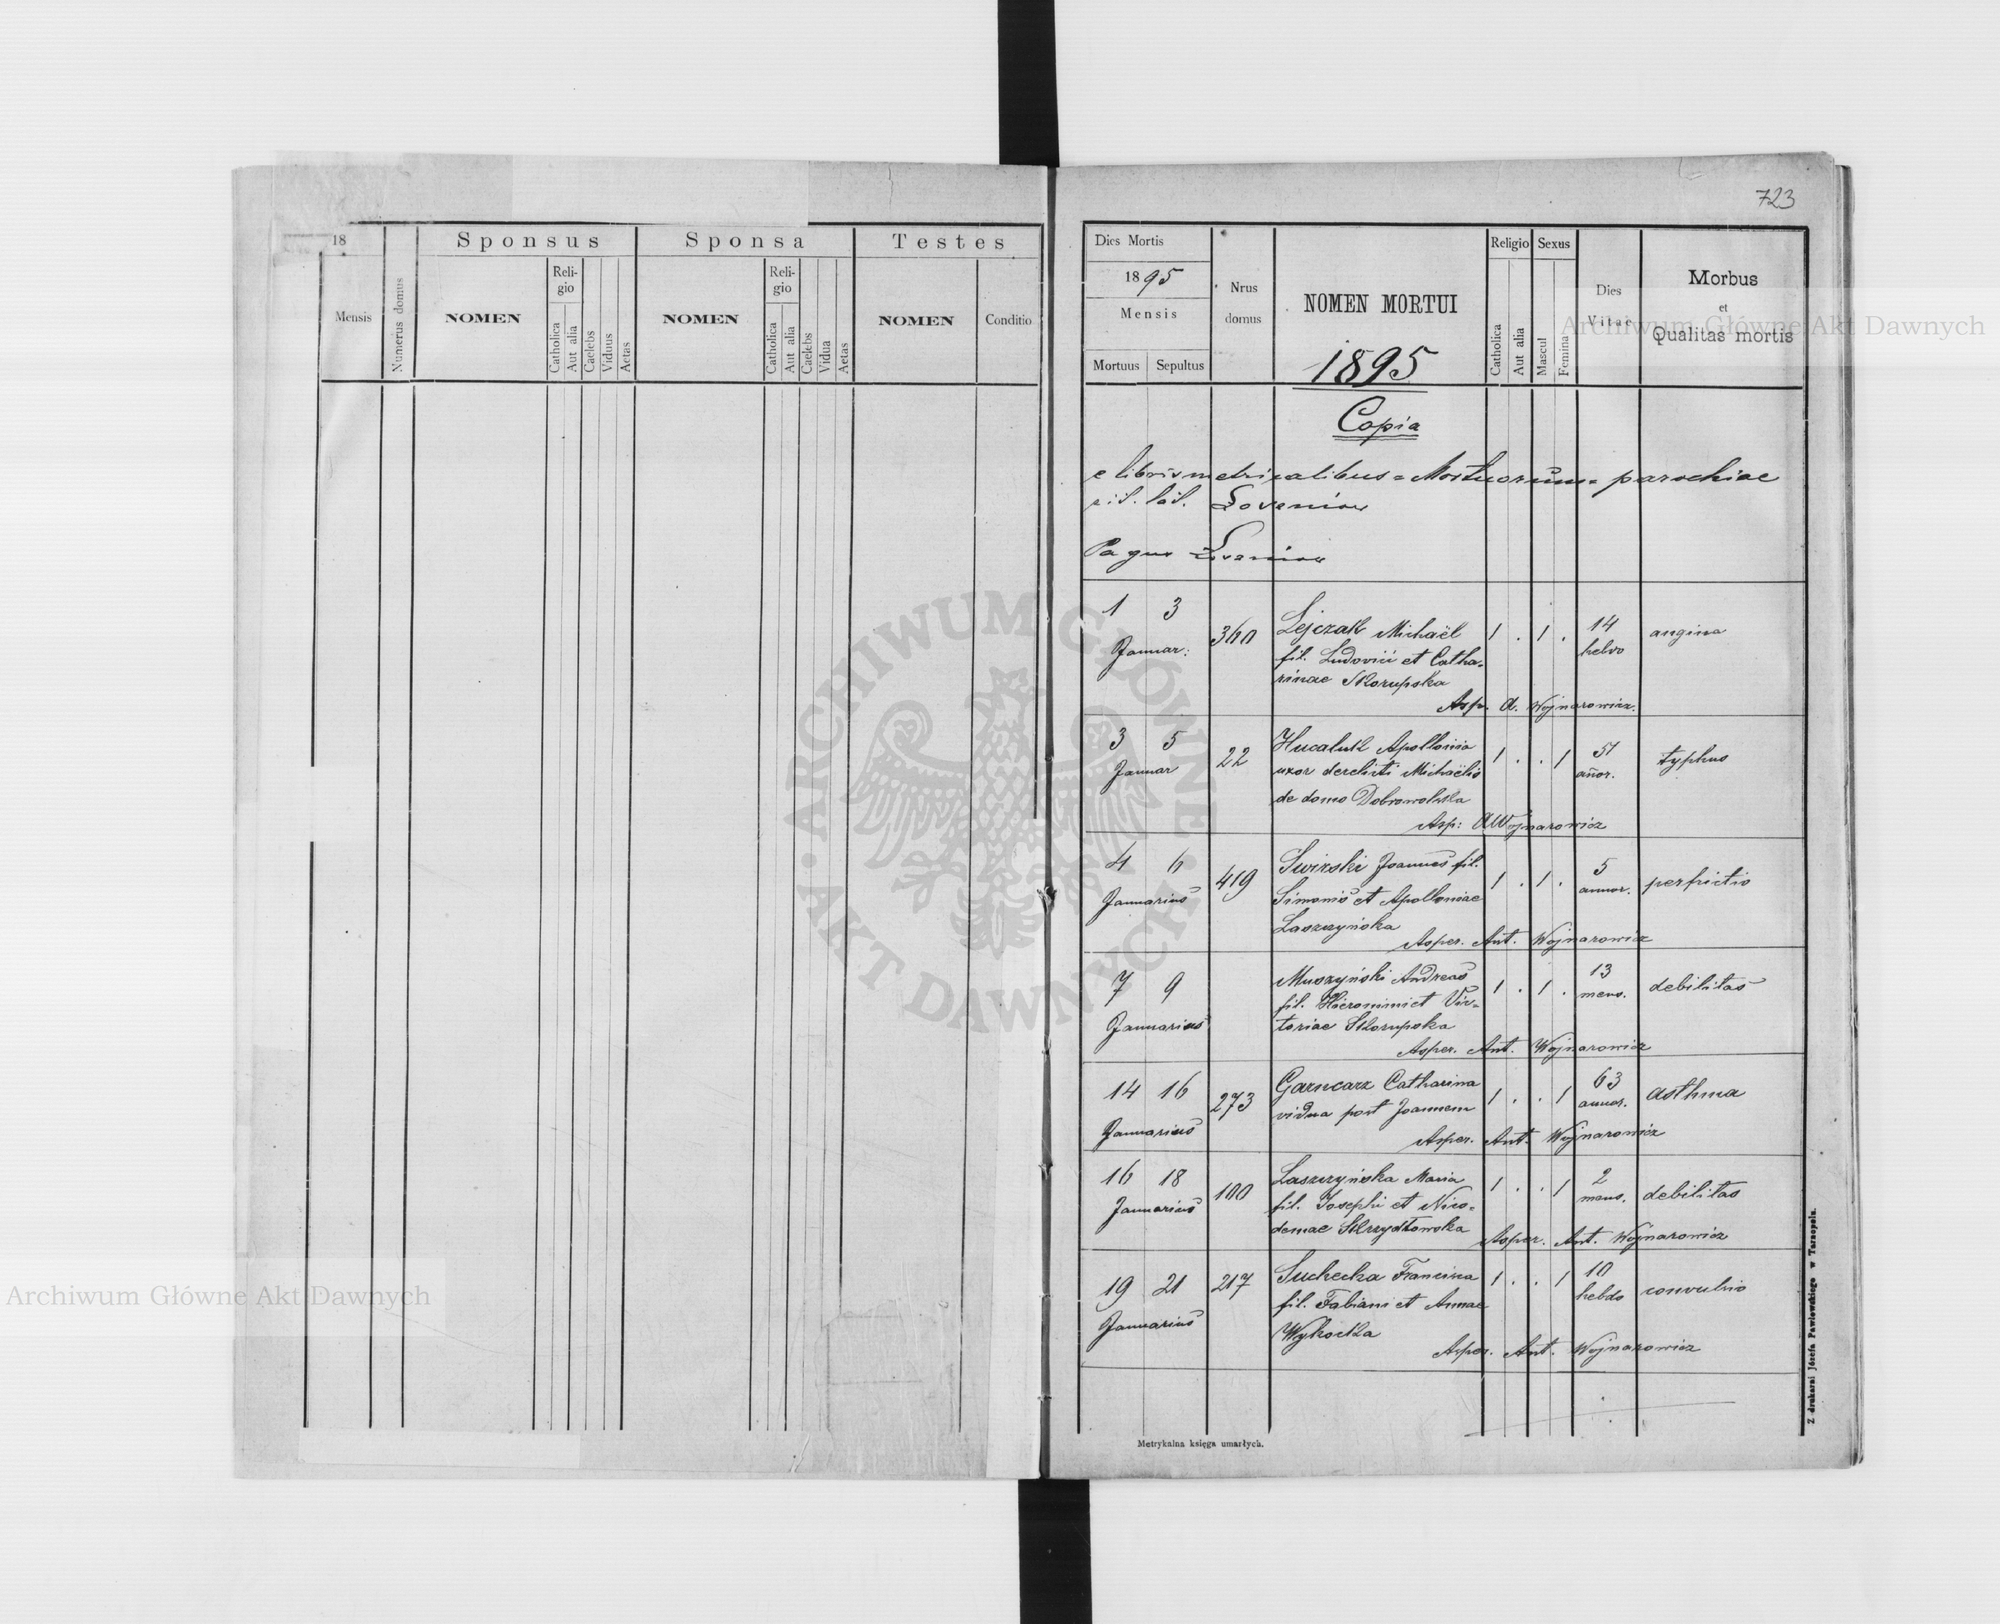 723
18
Mensis
Numerus domus
Sponsus
NOMEN
Religio
Catholica
Aut alia
Caelebs
Viduus
Aetas
Sponsa
NOMEN
Religio
Catholica
Aut alia
Caelebs
Vidua
Aetas
Testes
NOMEN
Conditio
Dies Mortis
1895
Mensis
Mortuus Sepultus
Nrus domus
NOMEN MORTUI
1895
Religio
Catholica
Aut alia
Sexus
Mascul
Femina
Dies Vitae
Morbus
et
Qualitas mortis
Copia
e libris metricalibus = Mortuorum = parochiae
rit. lat.
Pagus
1 3
Januar:
Michaël
fil. Ludovici et Catha-
rinae Skorupska
14
angina
Asp. A. Wojnarowicz.
3 5
Januar
22
Hucaluk Apollonia
uxor derelicti Michaëlis
de domo Dobrowolska
1 . . 1
añor.
typhus
Asp: AWojnarowicz
4 6
Januarius
419
Swirski Joannes fil.
Simonis et Apolloniae
Laszczyńska
1 . 1 .
5
annor.
Asper. Ant. Wojnarowicz
7 9
Januarius
Muszyński Andreas
fil. Hieronimi et Vic-
toriae Skorupska
1 . 1 .
13
mens.
debilitas
Asper. Ant. Wojnarowicz
14 16
Januarius
273
Garncarz Catharina
vidua post Joannem
1 . . 1
63
annor.
asthma
Asper. Ant. Wojnarowicz
16 18
Januarius
100
Laszczyńska Maria
fil. Josephi et Nico-
demae Skrzydłowska
1 . . 1
2
mens.
debilitas
Asper. Ant. Wojnarowicz
19 21
Januarius
217
Suchecka Francisca
fil. Fabiani et Annae
1 . . 1
10
hebdo
convulsio
Asper. Ant. Wojnarowicz
Metrykalna księga umarłych.
Z drukarni Józefa Pawłowskiego w Tarnopolu.
ARCHIWUM GŁÓWNE AKT DAWNYCH
Archiwum Główne Akt Dawnych
Archiwum Główne Akt Dawnych